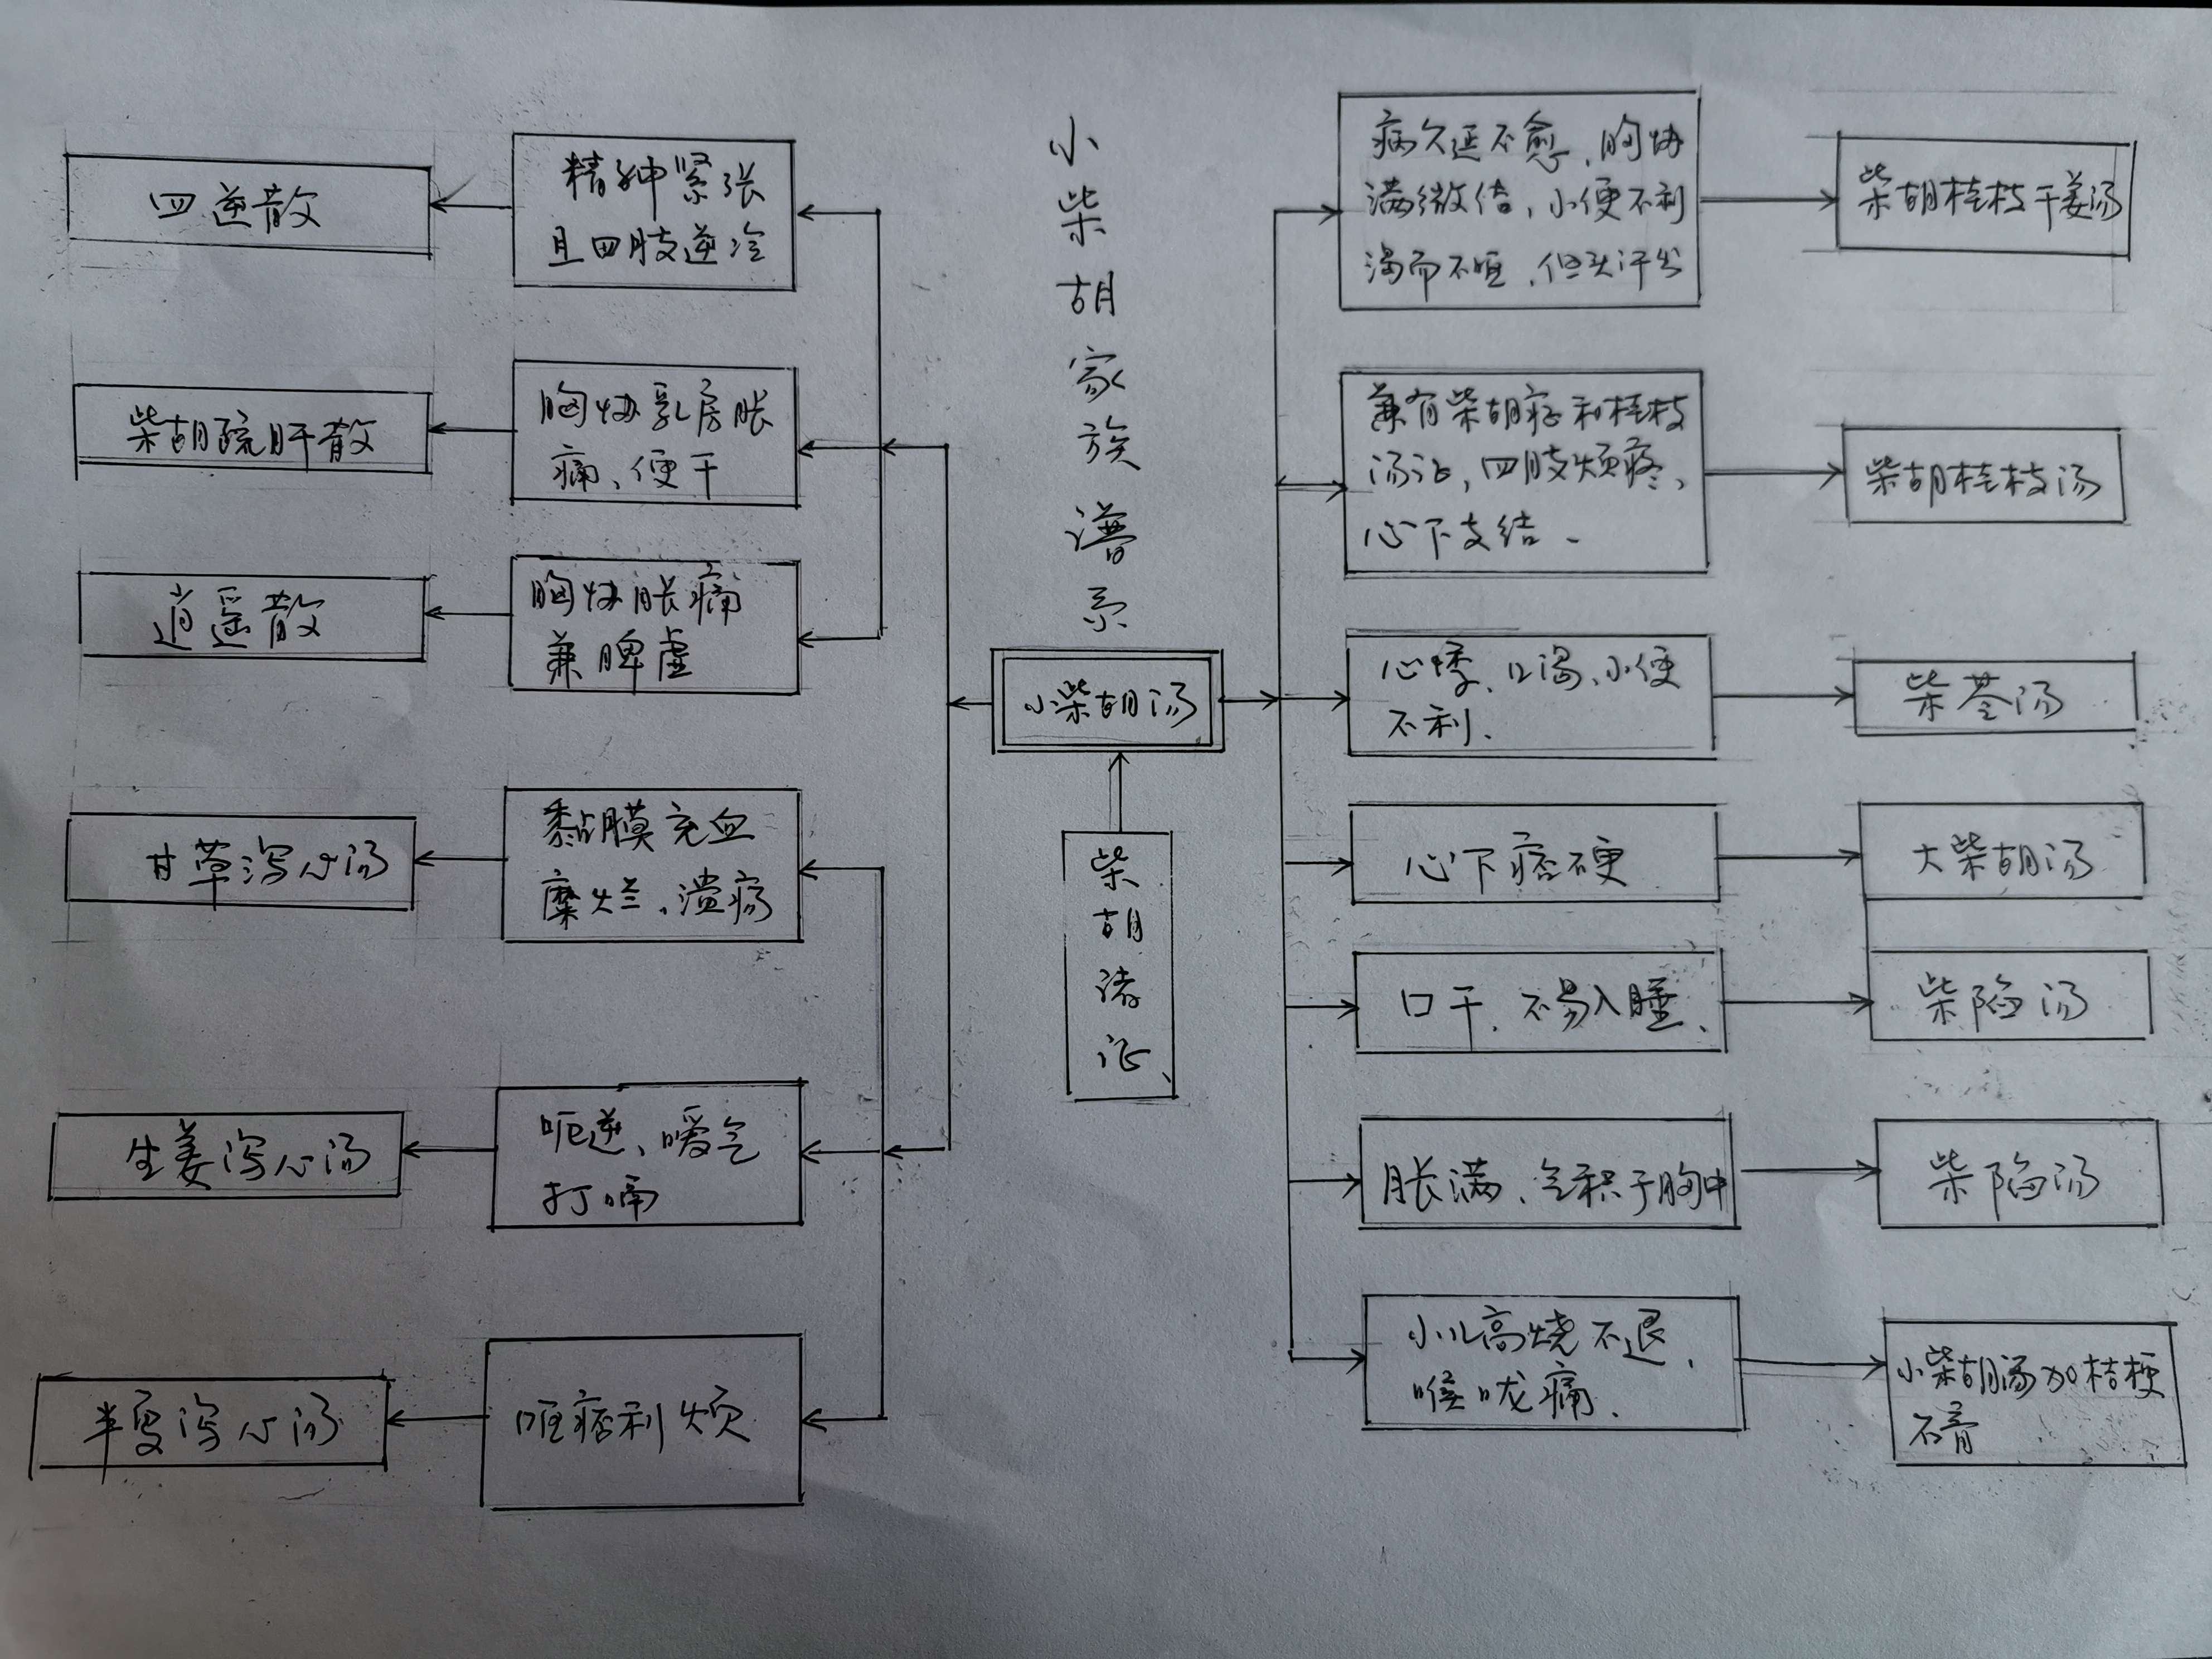 小柴胡家族谱系
小柴胡汤
柴胡诸证、
精神紧张
且四肢逆冷
四逆散
胸协乳房胀
痛、便干
柴胡疏肝散
胸协胀痛
兼脾虚
逍遥散
黏膜充血
糜烂、溃疡
甘草泻心汤
呃逆、嗳气
打嗝
生姜泻心汤
呕痞利烦
半夏泻心汤
病久延不愈、胸协
满微结，小便不利
渴而不呕、但头汗出
柴胡桂枝干姜汤
兼有柴胡症和桂枝
汤证，四肢烦疼、
心下支结、
柴胡桂枝汤
心悸、口渴、小便
不利、
柴苓汤
心下痞硬
大柴胡汤
口干、不易入睡、
柴陷汤
胀满、气积于胸中
柴陷汤
小儿高烧不退、
喉咙痛、
小柴胡汤加桔梗
石膏